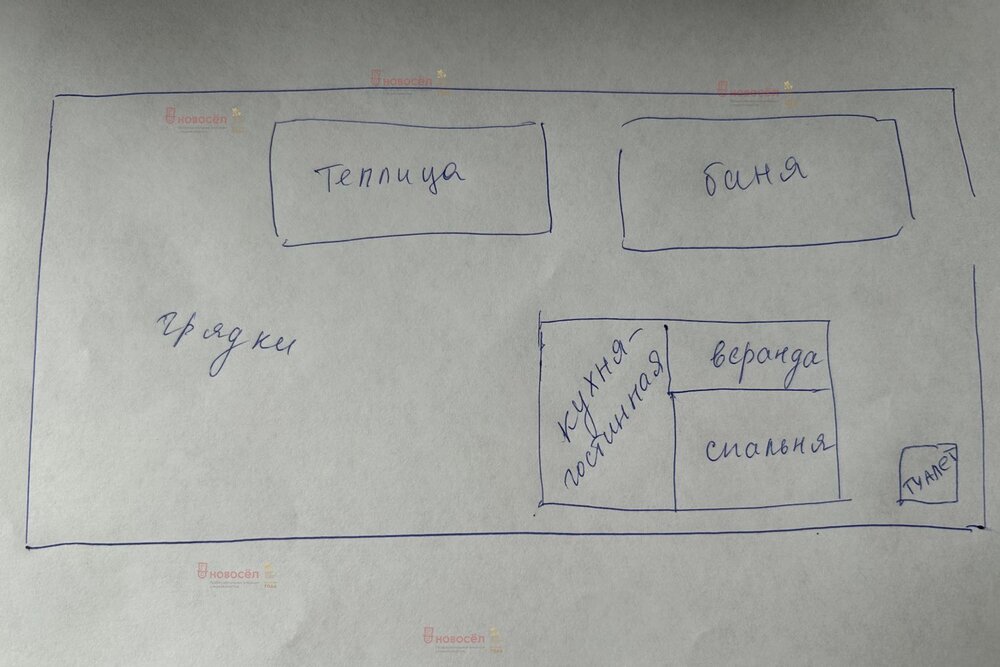 НОВОСЁЛ
НОВОСЁЛ
НОВОСЁЛ
теплица
баня
грядки
кухня-
гостинная
веранда
спальня
туалет
НОВОСЁЛ
НОВОСЁЛ